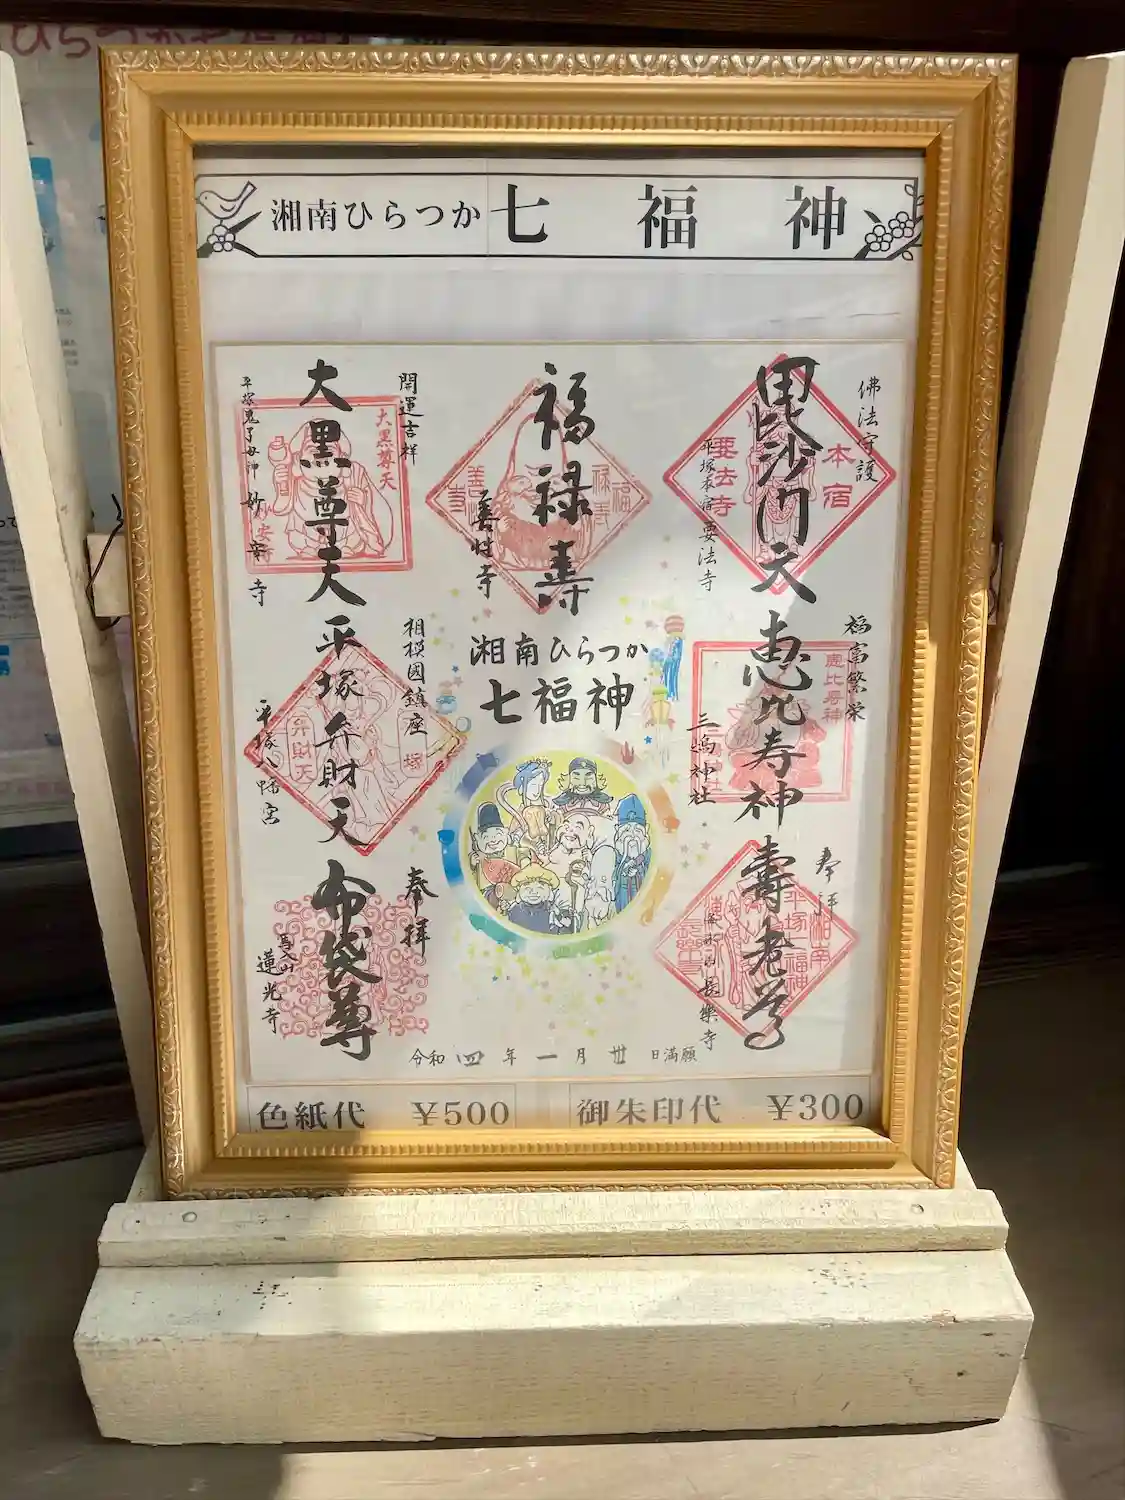 湘南ひらつか七福神
佛法守護
毘沙門天
本宿
要法寺
平塚本宿 要法寺
福禄寿
福禄寿
善性寺
善性寺
開運吉祥
大黒尊天
大黒尊天
平塚鬼子母神 妙安寺
福富繁栄
恵比寿神
恵比寿神
三嶋神社
湘南ひらつか
七福神
相模國鎮座
平塚弁財天
弁財天
塚
平塚八幡宮
奉拝
寿老尊
湘南
平塚七福神
長樂寺
奉拝
布袋尊
蓮光寺
令和四年一月廿日満願
色紙代 ¥500
御朱印代 ¥300